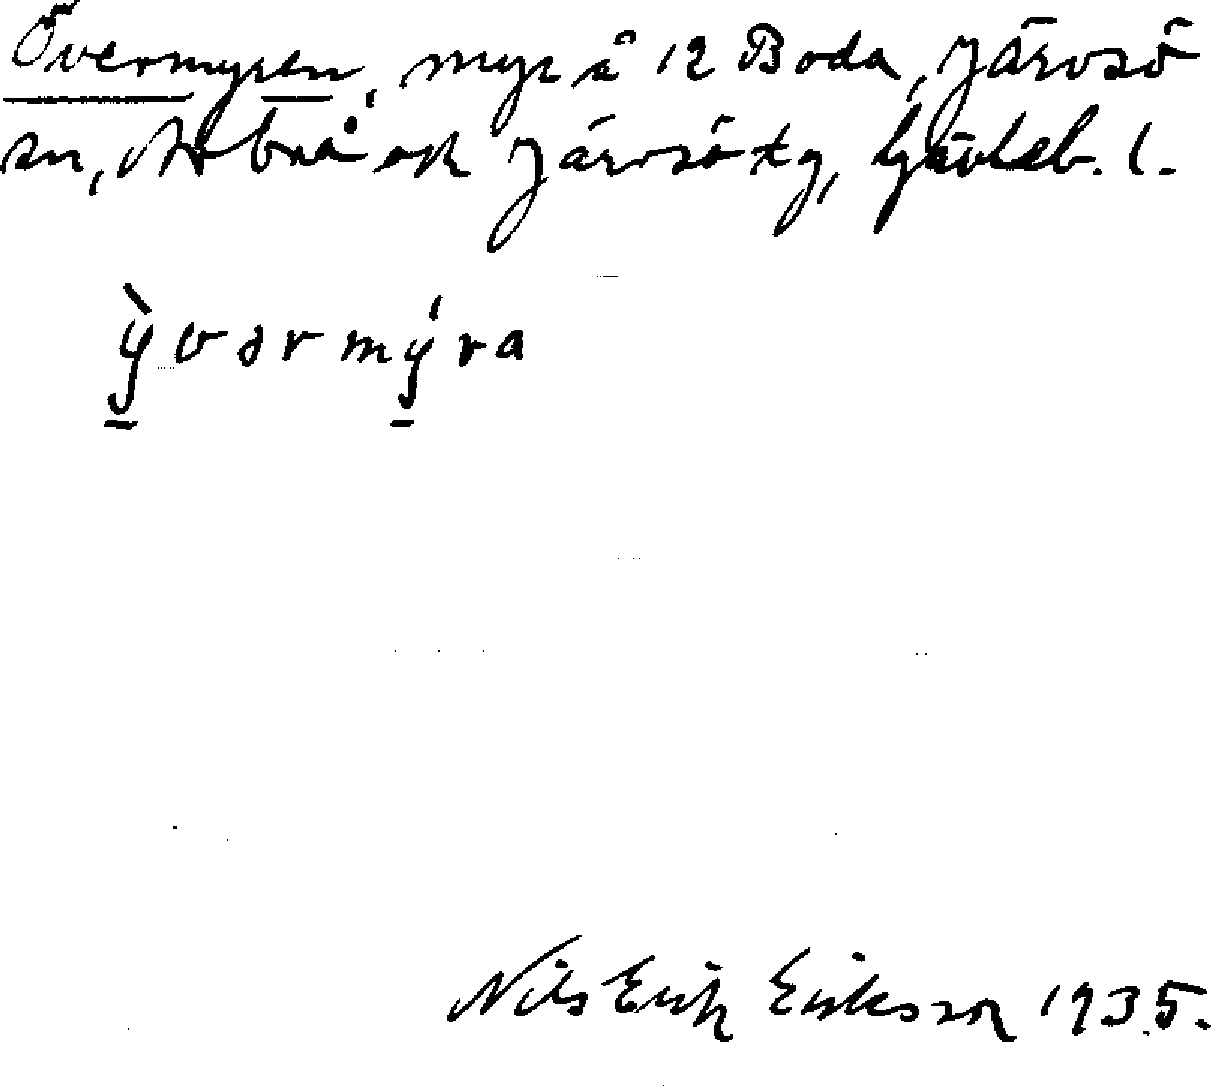 Övermyren, myr å 12 Boda, Järvsö
sn, Arbrå ok Järvsö tg, Gävleb. l.
ỳvərmýra
Nils Erik Eriksson 1935.